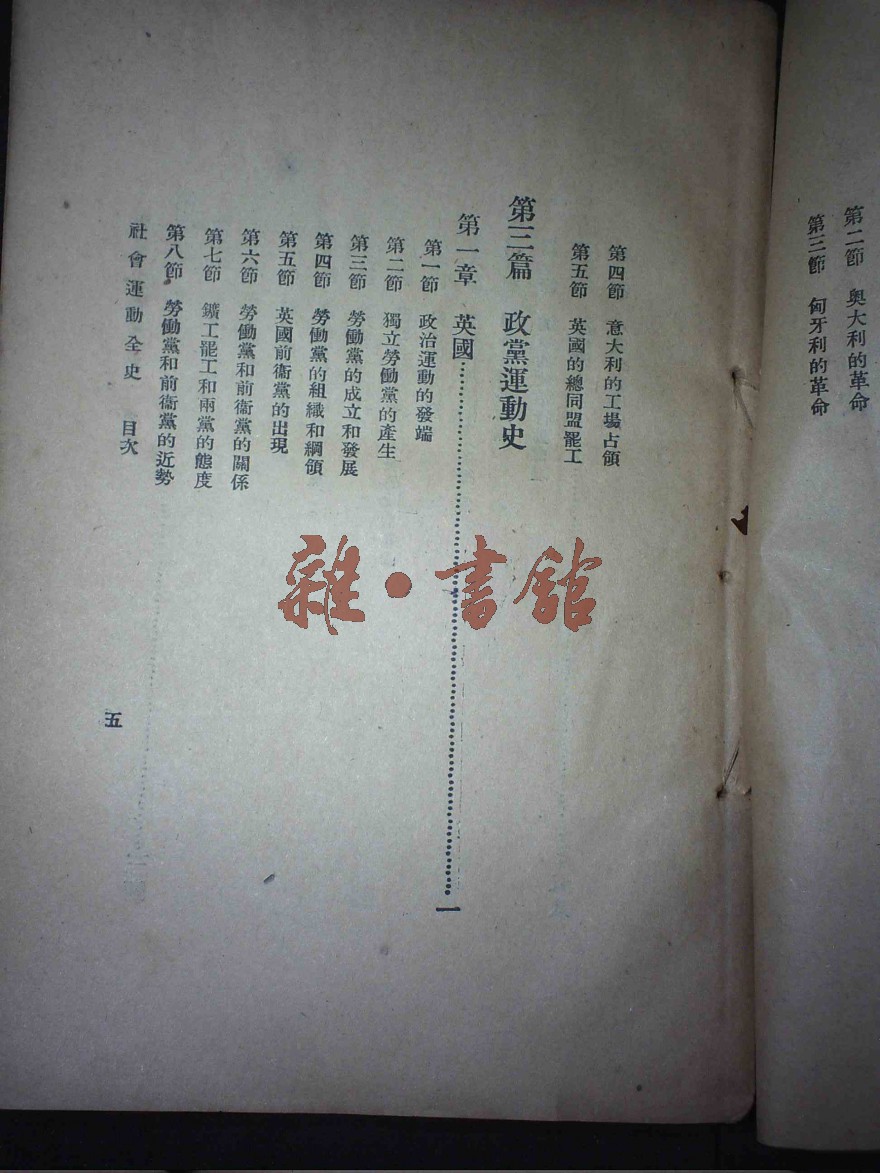 第二節　奧大利的革命
第三節　匈牙利的革命
第四節　意大利的工場占領
第五節　英國的總同盟罷工
第三篇　政黨運動史
第一章　英國……………………………………………………一
第一節　政治運動的發端
第二節　獨立勞働黨的產生
第三節　勞働黨的成立和發展
第四節　勞働黨的組織和綱領
第五節　英國前衞黨的出現
第六節　勞働黨和前衞黨的關係
第七節　鑛工罷工和兩黨的態度
第八節　勞働黨和前衞黨的近勢
社會運動全史　目次
五
雜·書館